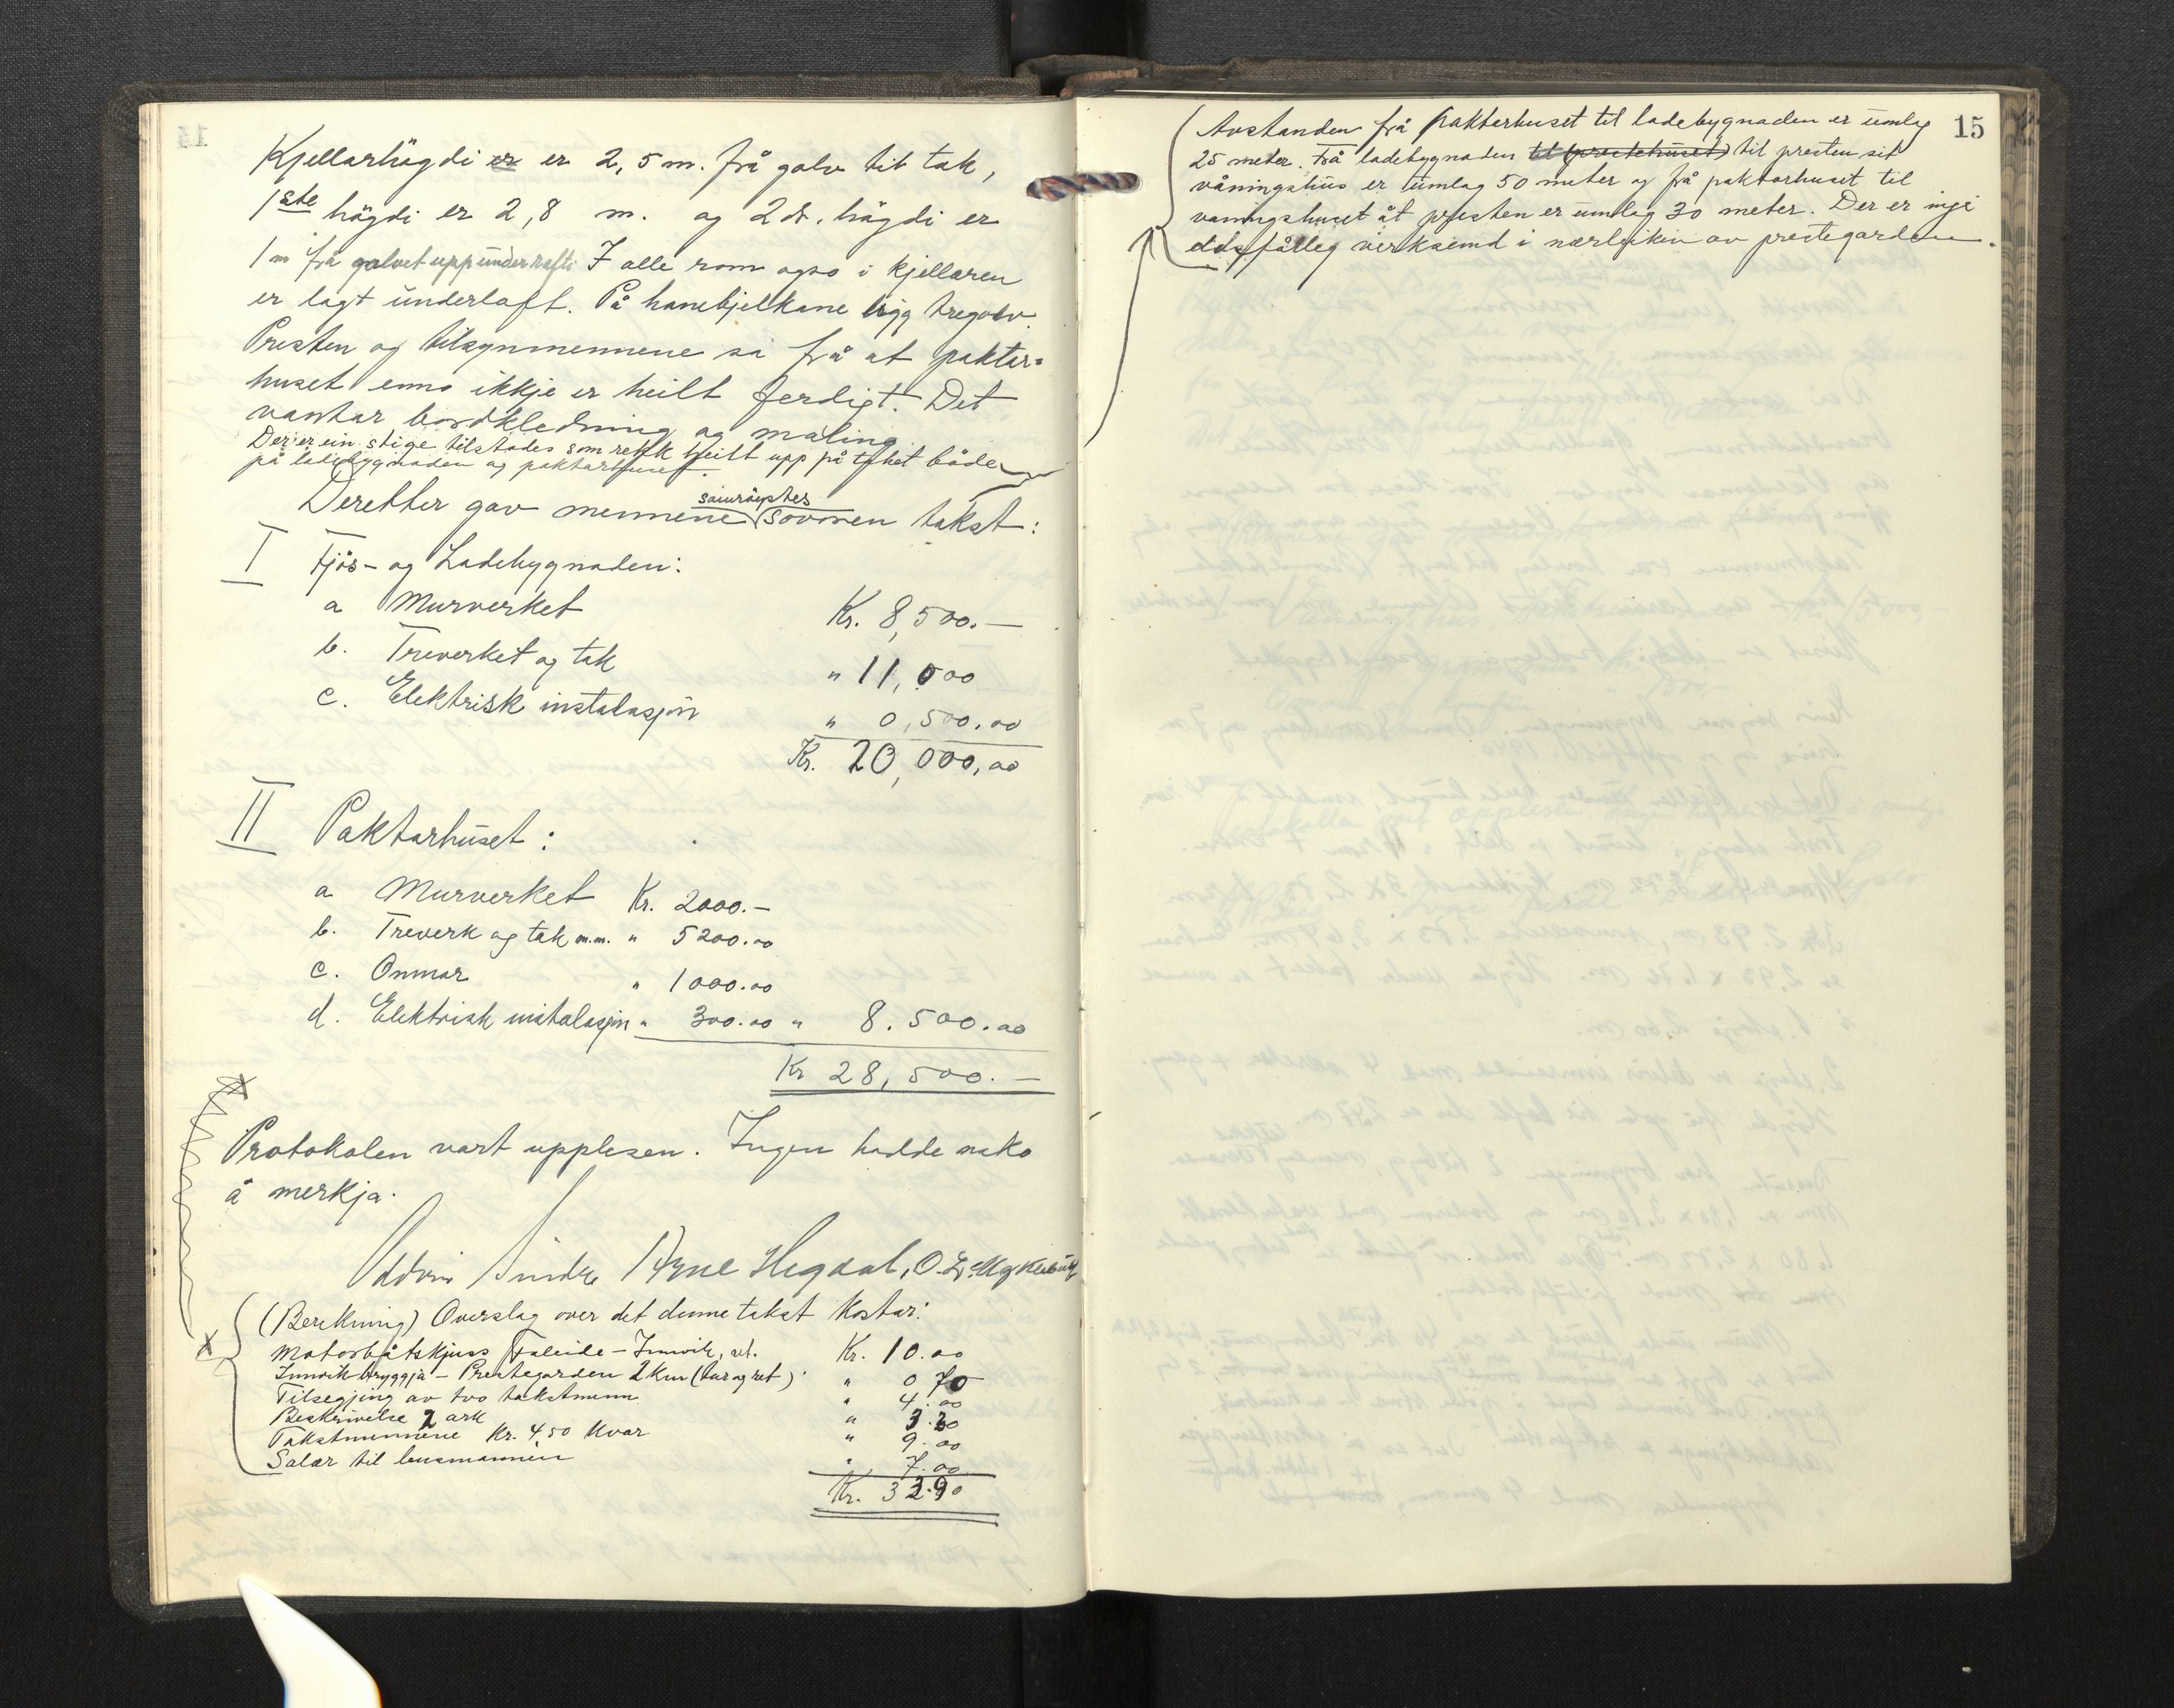 Kjellarhögdi er er 2,5 m. frå golv til tak,
1ste högdi er 2,8 m. og 2d. högdi er
1 m frå golvet upp under rafti I alle rom ogso i kjellaren
er lagt underloft. På hanebjelkane ligg tregolv.
Presten og tilsynmennene sa frå at paktar=
huset enno ikkje er heilt ferdigt. Det
vantar bordkledning og maling.
Der er ein stige tilstades som rekk heilt upp på taket både
på ladebygnaden og paktarhuset.
Deretter gav mennene samröystes soveren takst:
I Fjös- og Ladebygnaden:
a Murverket Kr. 8,500.—
b. Treverket og tak " 11,000
c. Elektrisk instalasjon " 0,500.00
Kr. 20,000,00
II Paktarhuset:
a Murverket Kr. 2000.—
b. Treverk og tak m.m. " 5200.00
c. Omnar " 1000.00
d. Elektrisk instalasjon " 300.00 " 8.500.00
Kr 28,500.—
Protokolen vart upplesen. Ingen hadde noko
å merkja.
Arne Hegdal, O. L.
(Berekning) Overslag over det denne takst kostar:
Motorbåtskjuss Faleide – Innvik, ret. Kr. 10.00
Innvik bryggja – Prestegarden 2 km (tur og ret) " 0 70
Tilsegjing av tvo takstmenn " 4.00
Beskrivelse 2 ark " 3.20
Takstmennene Kr. 4 50 kvar " 9.00
Salær til lensmannen " 7.00
Kr. 32.90
15
Avstanden frå paktarhuset til ladebygnaden er umlag
25 meter. Frå ladebygnaden til (prestehuset) til presten sit
våningshus er umlag 50 meter og frå paktarhuset til
våningshuset åt presten er umlag 30 meter. Der er ingi
eldsfårleg verksemd i nærleiken av prestegarden.